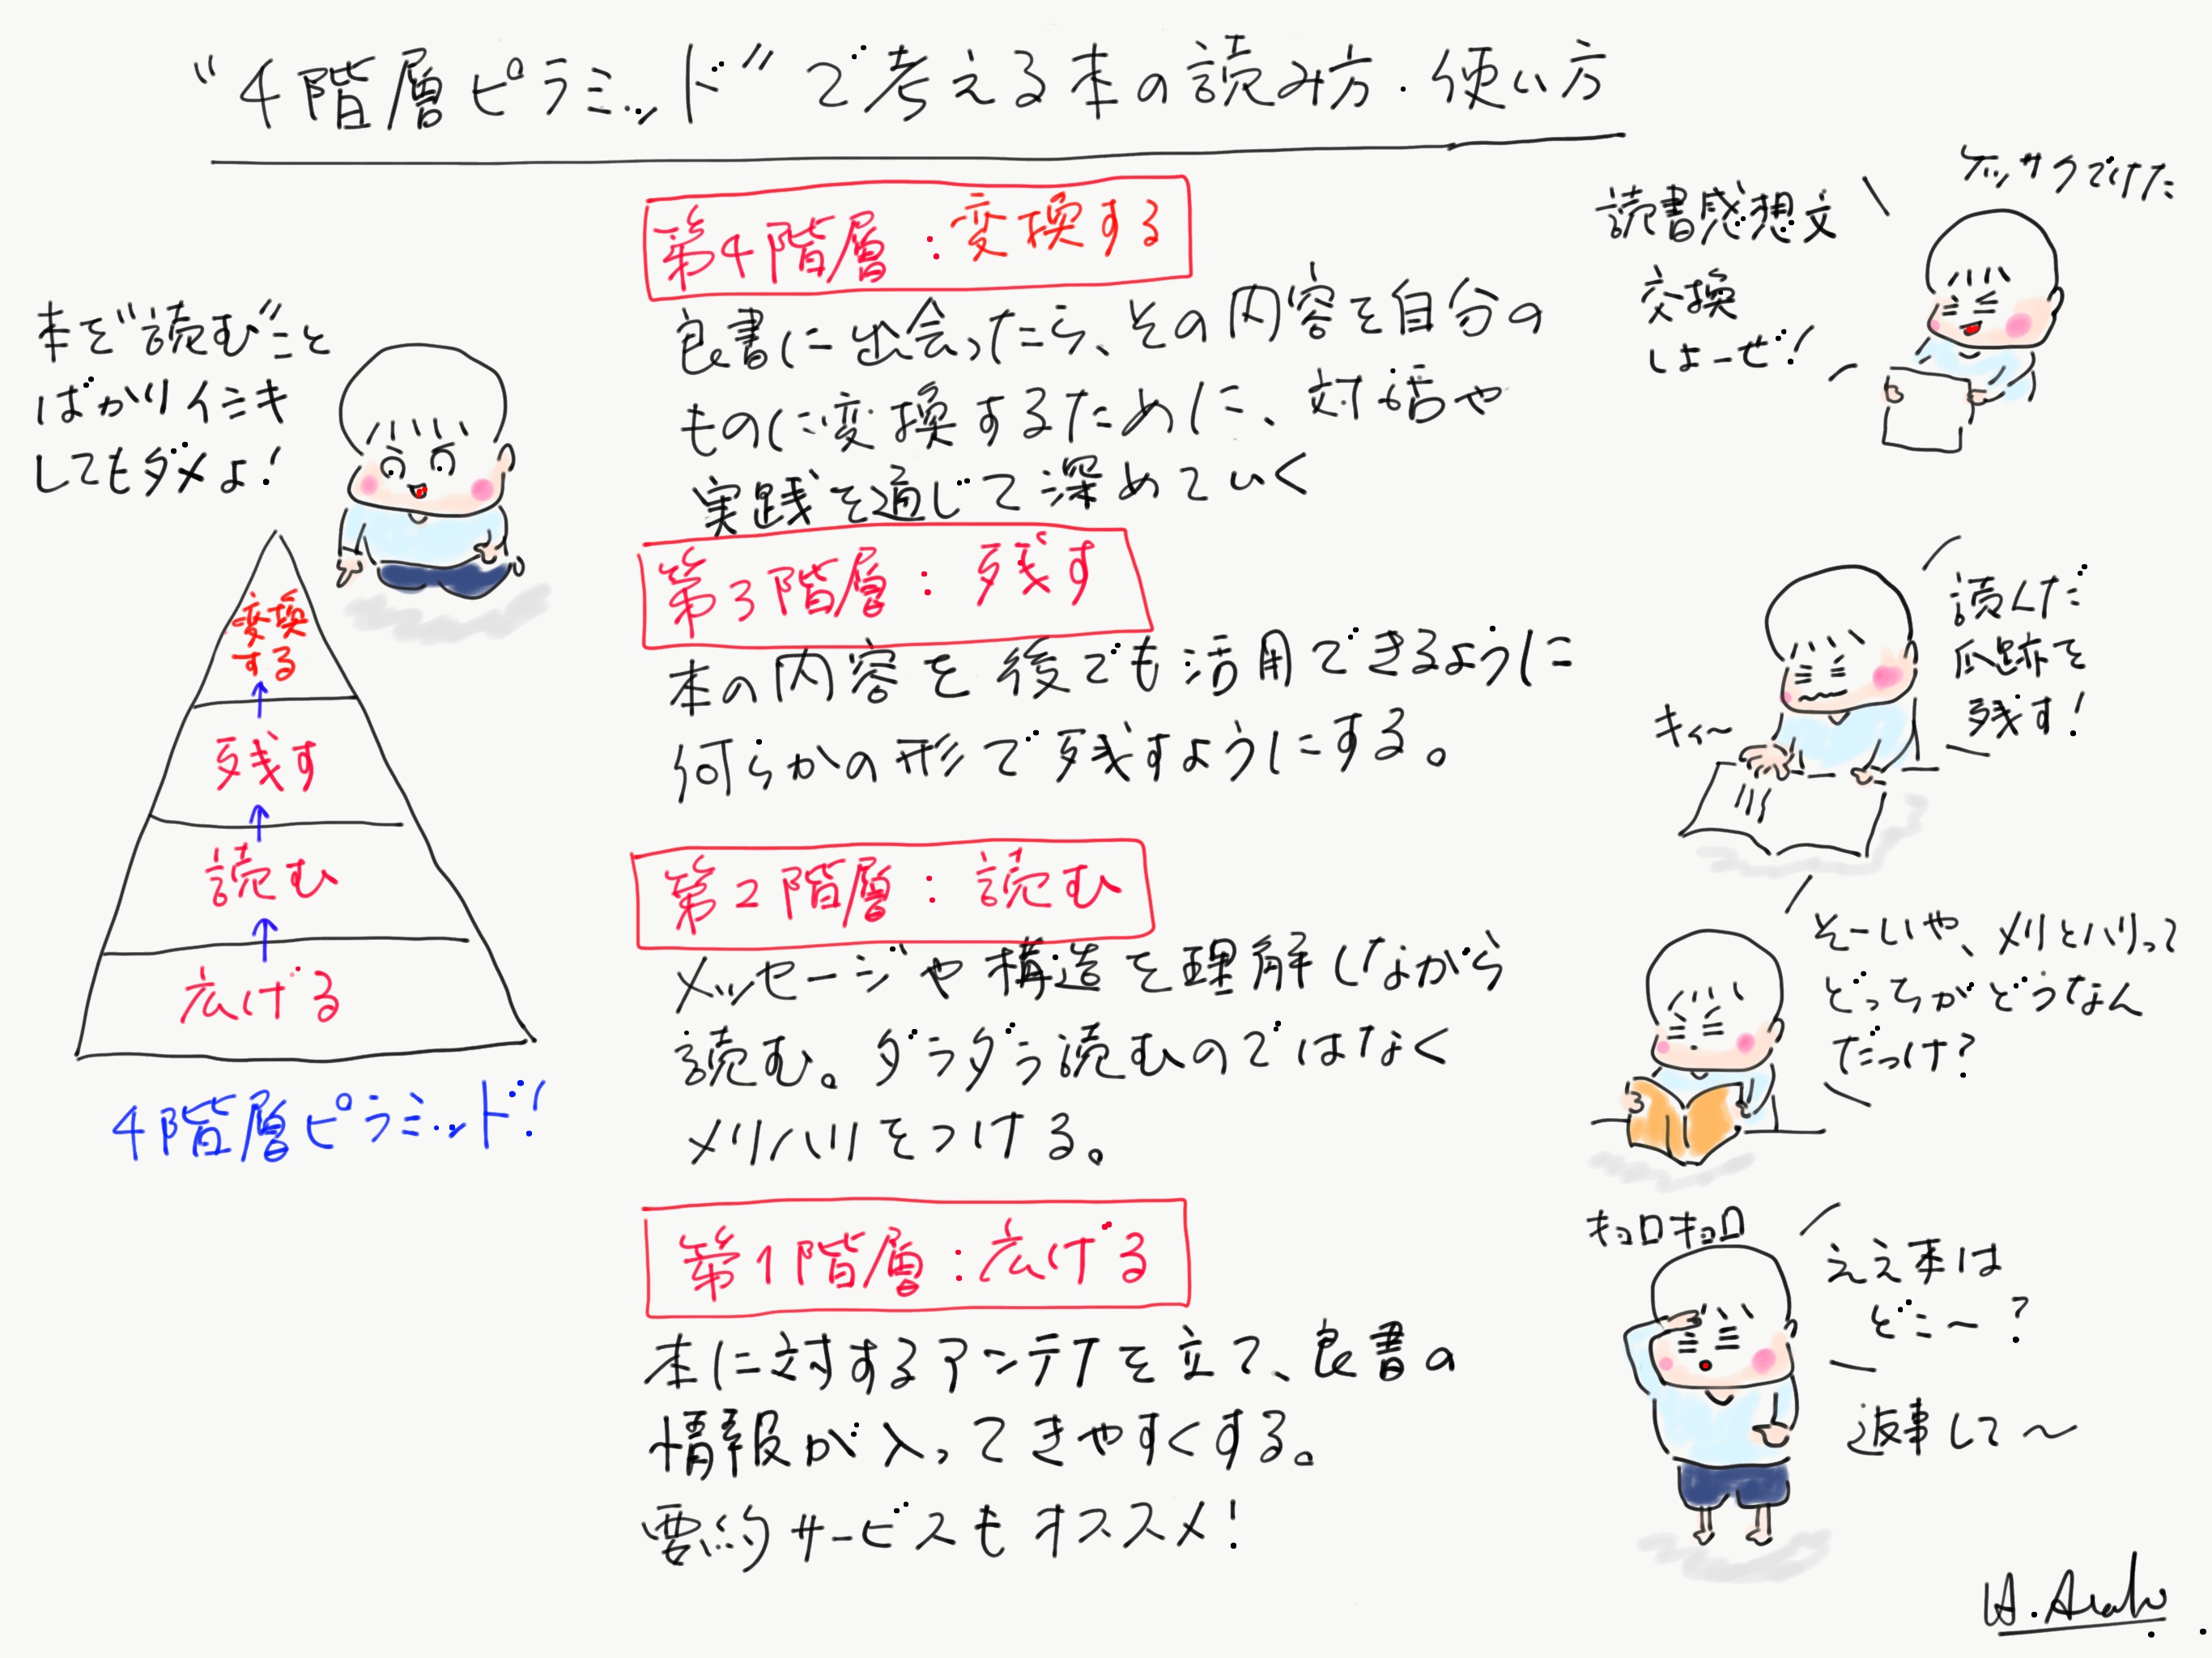 “4階層ピラミッド”で考える本の読み方・使い方
本を“読む”こと
ばかりイシキ
してもダメよ!
変換
する
残す
読む
広げる
4階層ピラミッド!
第4階層:変換する
良書に出会ったら、その内容を自分の
ものに変換するために、対話や
実践を通じて深めていく
ケッサクでけた
読書感想文
交換
しよーぜ!
第3階層:残す
本の内容を後でも活用できるように
何らかの形で残すようにする。
読んだ
爪跡を
残す!
キィ~
第2階層:読む
メッセージや構造を理解しながら
読む。ダラダラ読むのではなく
メリハリをつける。
そーいや、メリとハリって
どっちがどうなん
だっけ?
第1階層:広げる
本に対するアンテナを立て、良書の
情報が入ってきやすくする。
要約サービスもオススメ!
キョロキョロ
ええ本は
どこ~?
返事して~